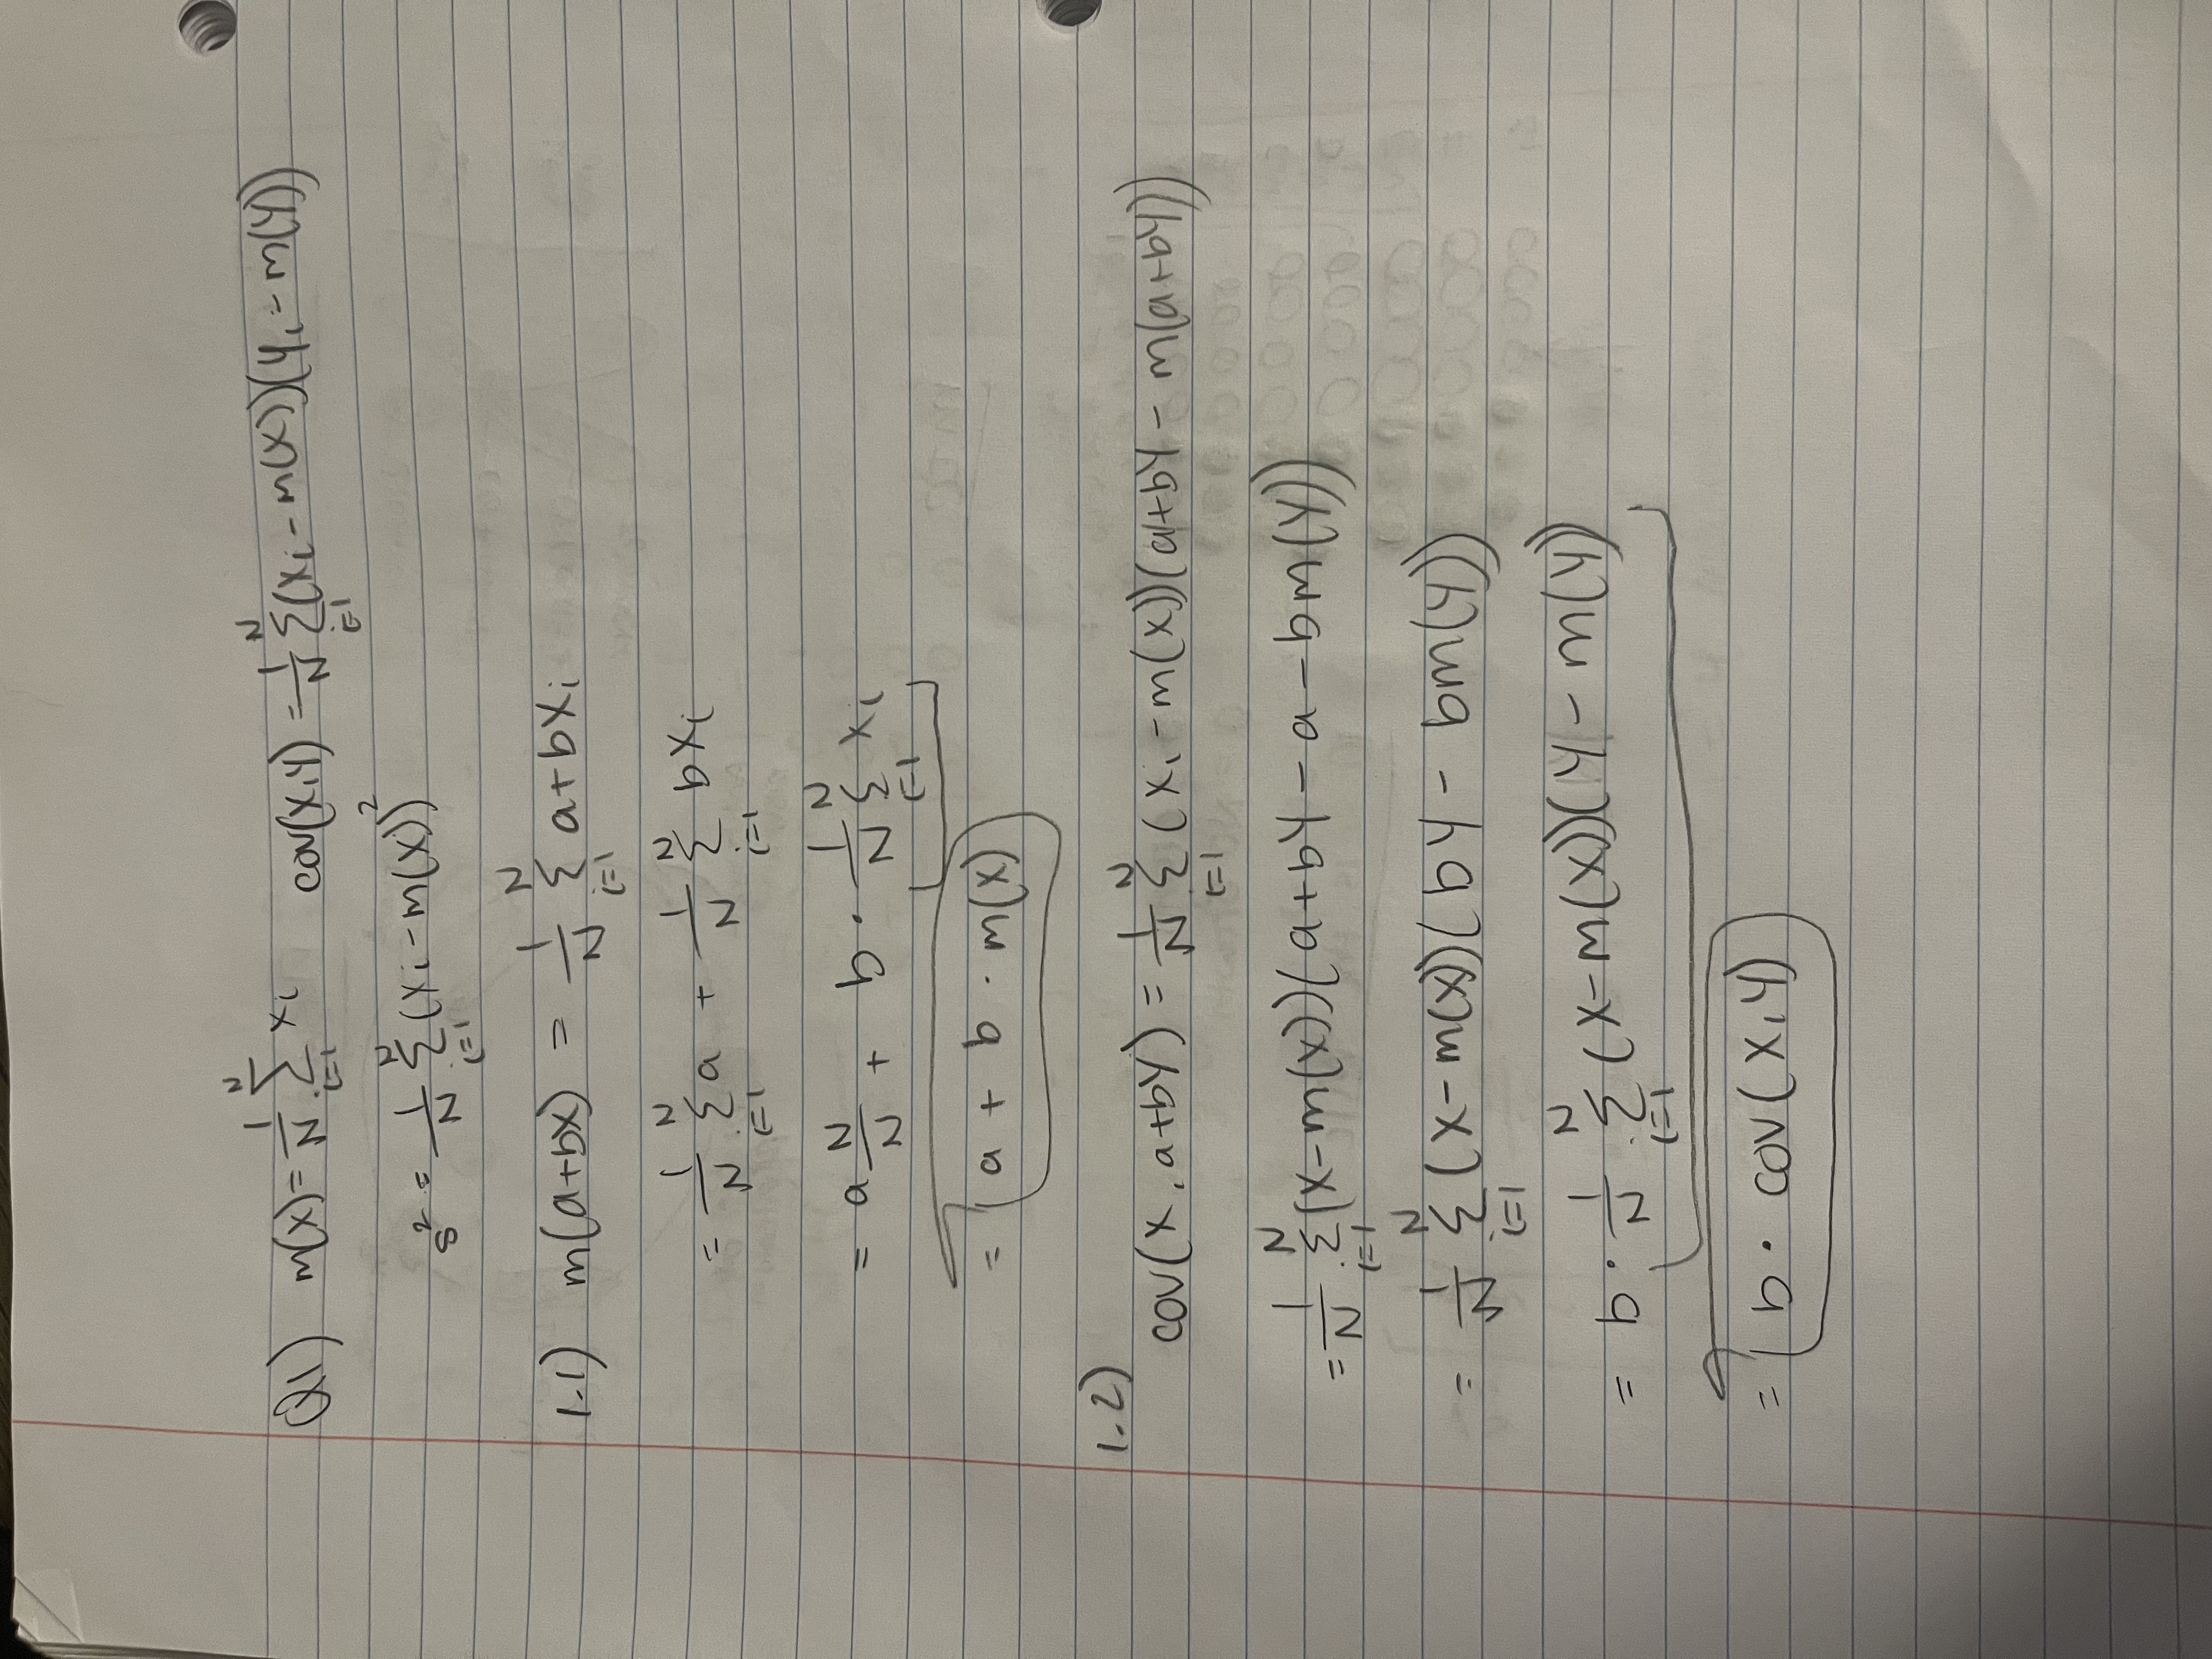 Q1) m(x) = 1/N Σ_{i=1}^{N} x_i   cov(x,y) = 1/N Σ_{i=1}^{N} (x_i - m(x))(y_i - m(y))
s² = 1/N Σ_{i=1}^{N} (x_i - m(x))²
1.1) m(a+bx) = 1/N Σ_{i=1}^{N} a+bx_i
= 1/N Σ_{i=1}^{N} a + 1/N Σ_{i=1}^{N} bx_i
= a N/N + b · 1/N Σ_{i=1}^{N} x_i
= a + b · m(x)
1.2)
cov(x, a+by) = 1/N Σ_{i=1}^{N} (x_i - m(x))(a+by - m(a+by))
= 1/N Σ_{i=1}^{N} (x - m(x))(a+by - a - bm(y))
= 1/N Σ_{i=1}^{N} (x - m(x))(by - bm(y))
= b · 1/N Σ_{i=1}^{N} (x - m(x))(y - m(y))
= b · cov(x,y)